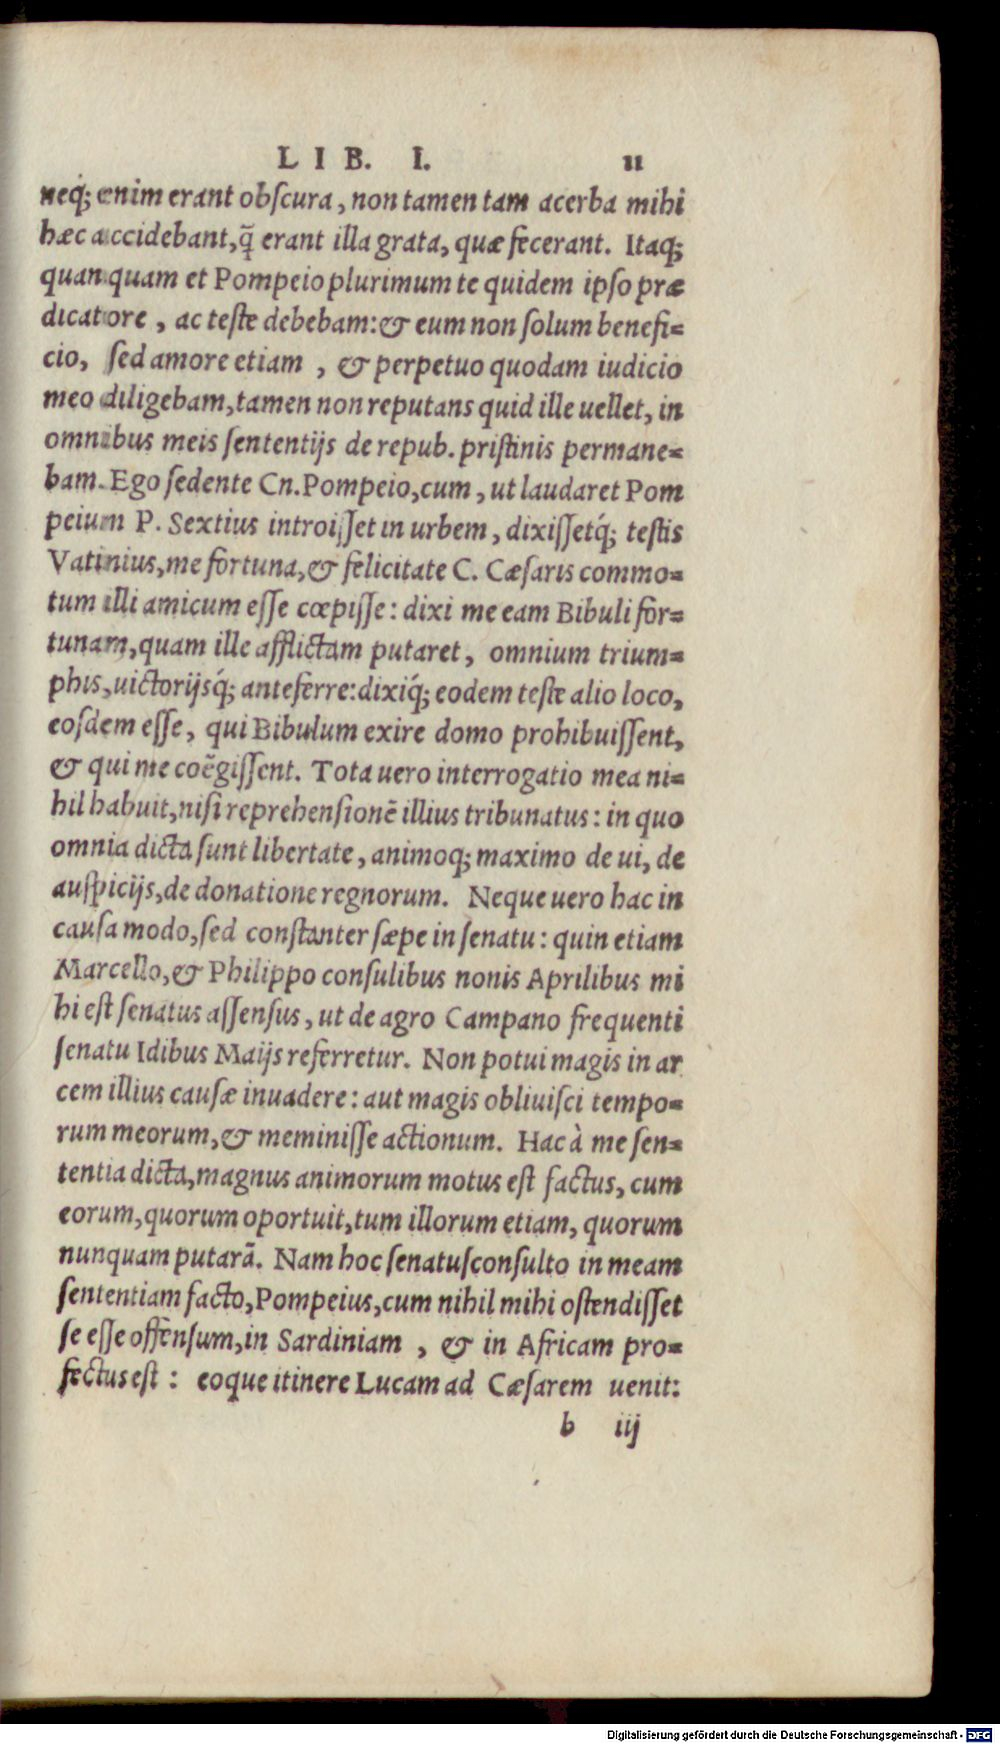 LIB. I. 11
neq́; enim erant obſcura, non tamen tam acerba mihi
hæc accidebant, q̃ erant illa grata, quæ fecerant. Itaq;
quanquam et Pompeio plurimum te quidem ipſo præ
dicatore, ac teſte debebam: & eum non ſolum benefi=
cio, ſed amore etiam, & perpetuo quodam iudicio
meo diligebam, tamen non reputans quid ille uellet, in
omnibus meis ſententijs de repub. priſtinis permane=
bam. Ego ſedente Cn. Pompeio, cum, ut laudaret Pom
peium P. Sextius introiſſet in urbem, dixiſſetq́; teſtis
Vatinius, me fortuna, & felicitate C. Cæſaris commo=
tum illi amicum eſſe cœpiſſe: dixi me eam Bibuli for=
tunam, quam ille afflictam putaret, omnium trium=
phis, uictorijsq́; anteferre: dixiq́; eodem teſte alio loco,
eoſdem eſſe, qui Bibulum exire domo prohibuiſſent,
& qui me coẽgiſſent. Tota uero interrogatio mea ni=
hil habuit, niſi reprehenſionẽ illius tribunatus: in quo
omnia dicta ſunt libertate, animoq; maximo de ui, de
auſpicijs, de donatione regnorum. Neque uero hac in
cauſa modo, ſed conſtanter ſæpe in ſenatu: quin etiam
Marcello, & Philippo conſulibus nonis Aprilibus mi
hi eſt ſenatus aſſenſus, ut de agro Campano frequenti
ſenatu Idibus Maijs referretur. Non potui magis in ar
cem illius cauſæ inuadere: aut magis obliuiſci tempo=
rum meorum, & meminiſſe actionum. Hac à me ſen=
tentia dicta, magnus animorum motus eſt factus, cum
eorum, quorum oportuit, tum illorum etiam, quorum
nunquam putarã. Nam hoc ſenatuſconſulto in meam
ſententiam facto, Pompeius, cum nihil mihi oſtendiſſet
ſe eſſe offenſum, in Sardiniam, & in Africam pro=
fectus eſt: eoque itinere Lucam ad Cæſarem uenit:
b iij
Digitalisierung gefördert durch die Deutsche Forschungsgemeinschaft - DFG